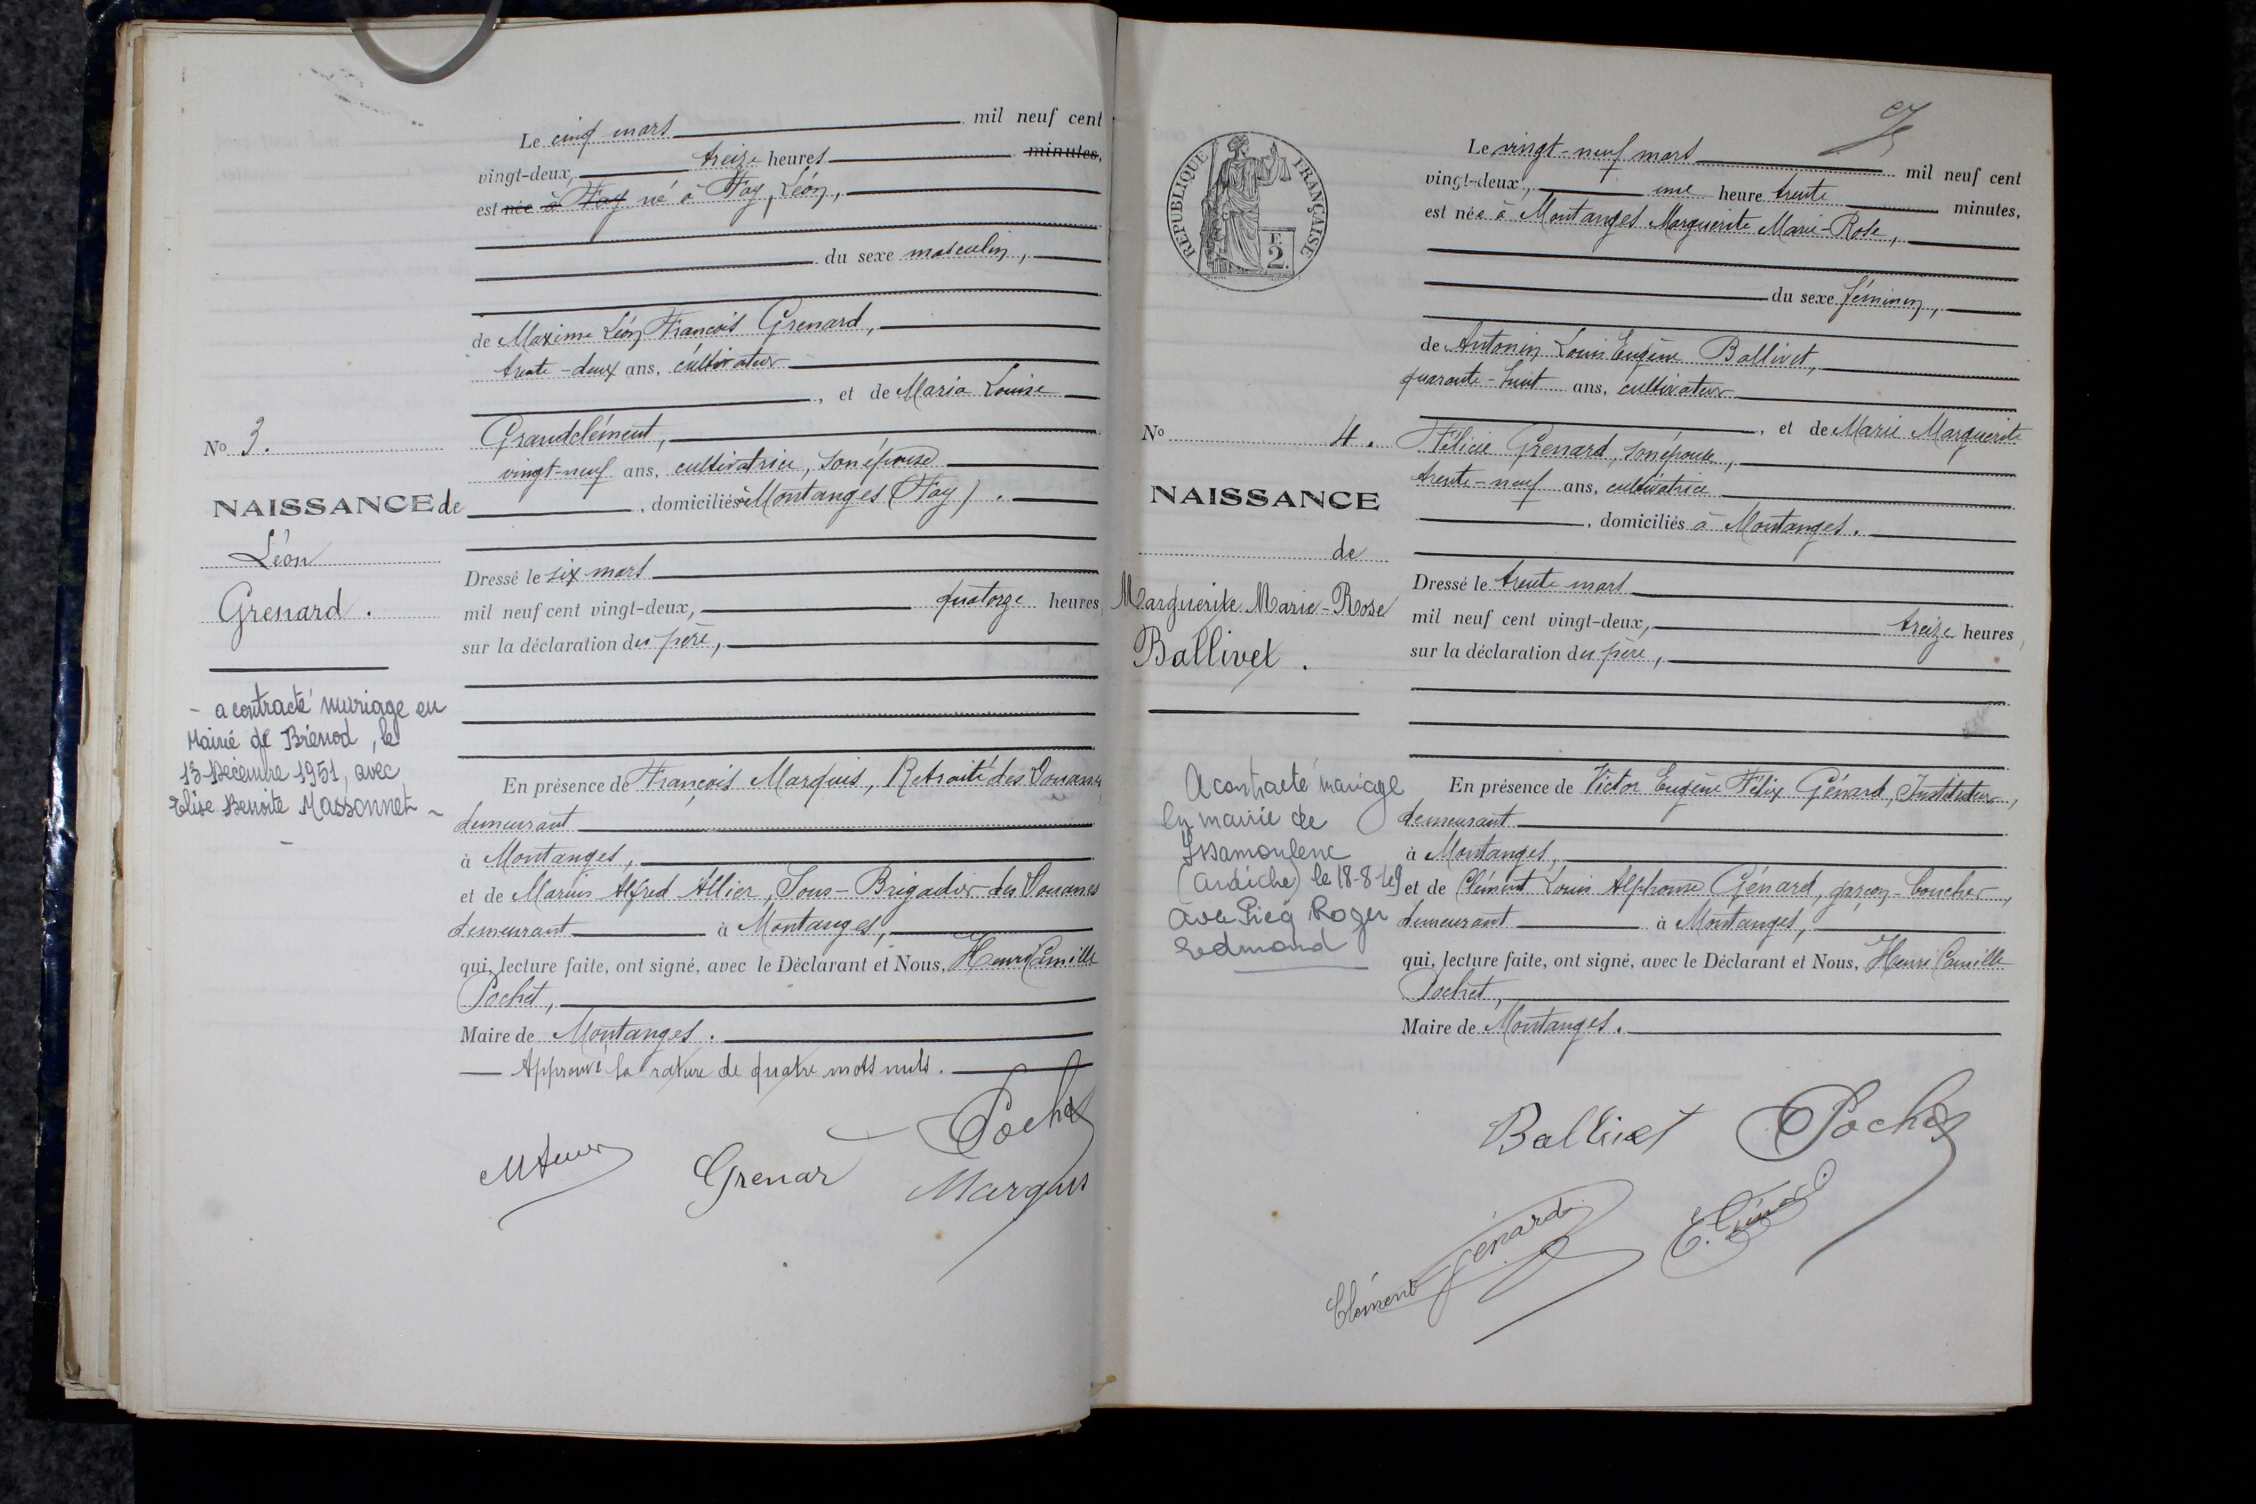 Le cinq mars mil neuf cent
vingt-deux, treize heures minutes,
est née à Fay né à Fay, Léon,
du sexe masculin,
de Maxime Léon François Grenard,
trente-deux ans, cultivateur
, et de Maria Louise
Grandclément,
vingt-neuf ans, cultivatrice, son épouse
, domiciliés à Montanges (Fay).
Dressé le six mars
mil neuf cent vingt-deux, quatorze heures,
sur la déclaration du père,
En présence de François Marquis, Retraité des Douanes,
demeurant
à Montanges,
et de Marius Alfred Allier, Sous-Brigadier des Douanes
demeurant à Montanges,
qui, lecture faite, ont signé, avec le Déclarant et Nous, Henri Camille
Pochet,
Maire de Montanges.
Approuvé la rature de quatre mots nuls.
Pochet
Grenar
Marquis
No 3.
NAISSANCE de
Léon
Grenard.
- a contracté mariage en
Mairie de Brénod, le
13 Décembre 1951, avec
Elise Benoite Massonnet -
RÉPUBLIQUE FRANÇAISE
F.
2.
Le vingt-neuf mars mil neuf cent
vingt-deux, une heure trente minutes,
est née à Montanges Marguerite Marie-Rose,
du sexe féminin,
de Antonin Louis Eugène Ballivet,
quarante-huit ans, cultivateur
, et de Marie Marguerite
Félicie Grenard, son épouse,
trente-neuf ans, cultivatrice
, domiciliés à Montanges.
Dressé le trente mars
mil neuf cent vingt-deux, treize heures,
sur la déclaration du père,
En présence de Victor Eugène Félix Génard, Instituteur,
demeurant
à Montanges,
et de Clément Louis Alphonse Génard, garçon-boucher,
demeurant à Montanges,
qui, lecture faite, ont signé, avec le Déclarant et Nous, Henri Camille
Pochet,
Maire de Montanges.
Ballivet Pochet
Clément Génard
E. Génard
No 4.
NAISSANCE
de
Marguerite Marie-Rose
Ballivet.
A contracté mariage
en mairie de
Issamoulenc
(Ardèche) le 18-8-49
avec Picq Roger
Edmond